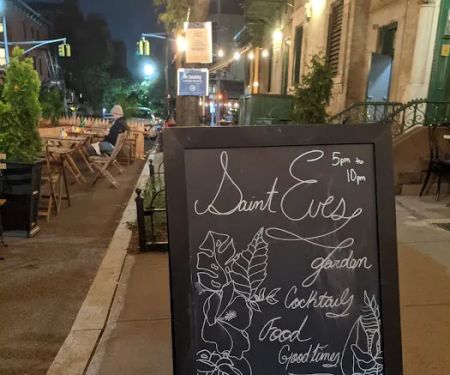 Saint Eves
5pm to
10pm
garden
Cocktails
Food
Good times